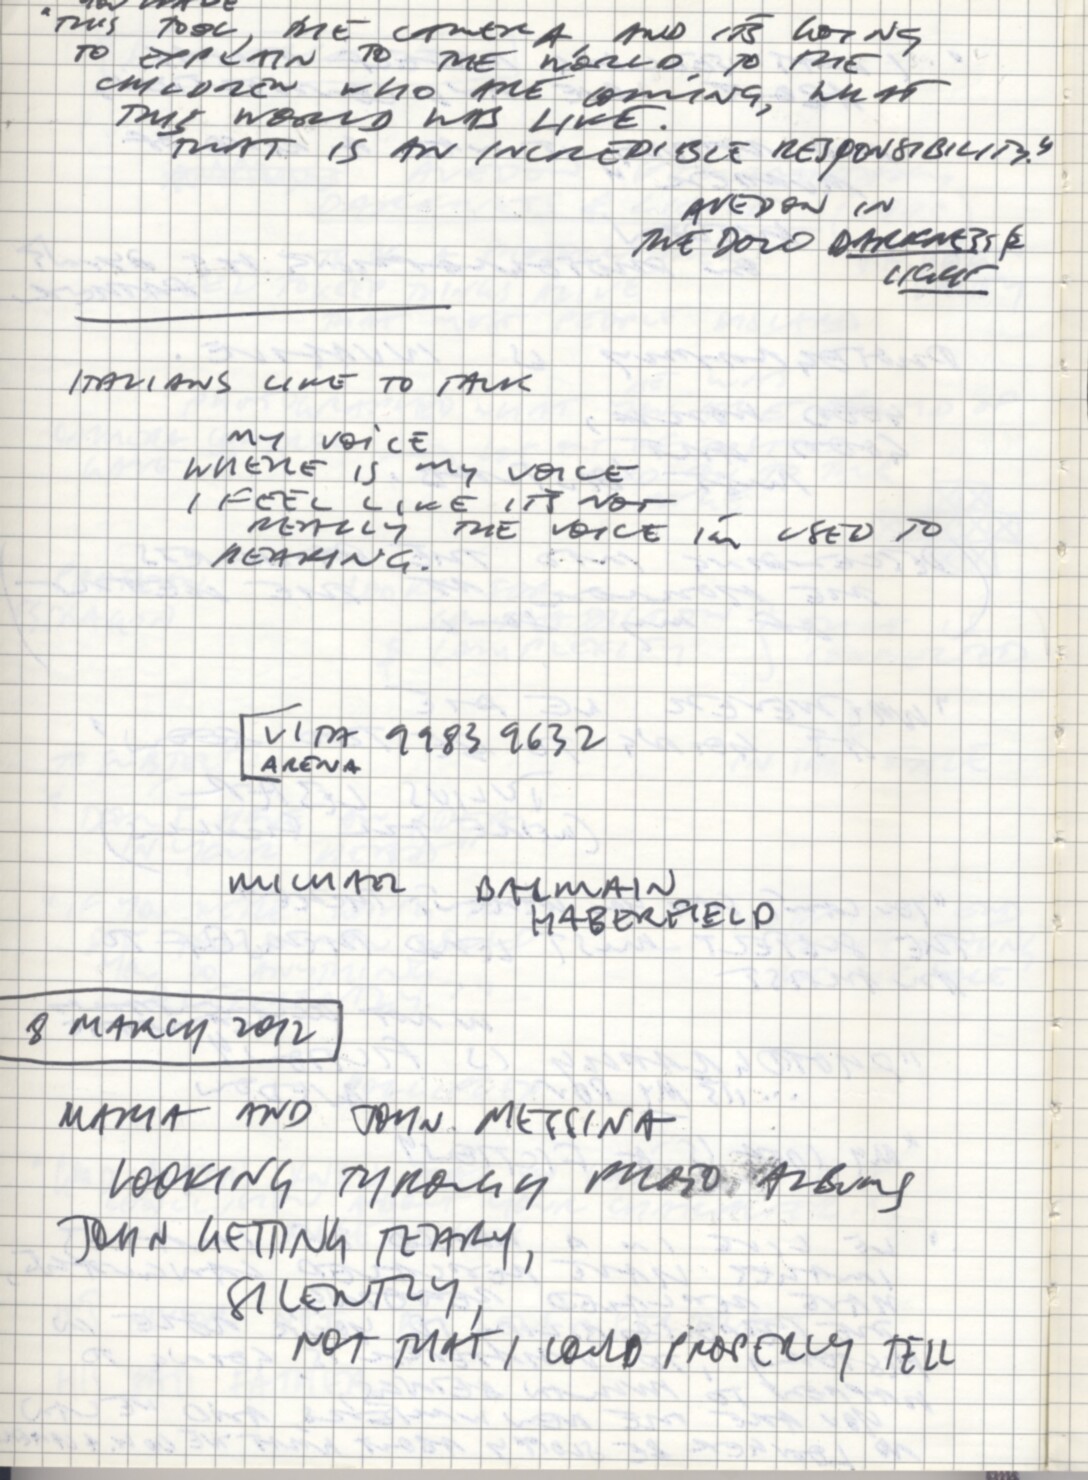 "YOU HAVE
THIS TOOL, THE CAMERA, AND IT'S GOING
TO EXPLAIN TO THE WORLD, TO THE
CHILDREN WHO ARE COMING, WHAT
THIS WORLD WAS LIKE.
THAT IS AN INCREDIBLE RESPONSIBILITY."
AVEDON IN
THE DOCO DARKNESS &
LIGHT
ITALIANS LIKE TO TALK
MY VOICE
WHERE IS MY VOICE
I FEEL LIKE IT'S NOT
REALLY THE VOICE I'M USED TO
HEARING.
VITA 9983 9632
ARENA
MICHAEL BALMAIN
HABERFIELD
8 MARCH 2012
MARIA AND JOHN MESSINA
LOOKING THROUGH PHOTO ALBUMS
JOHN GETTING TEARY,
SILENTLY,
NOT THAT I COULD PROPERLY TELL